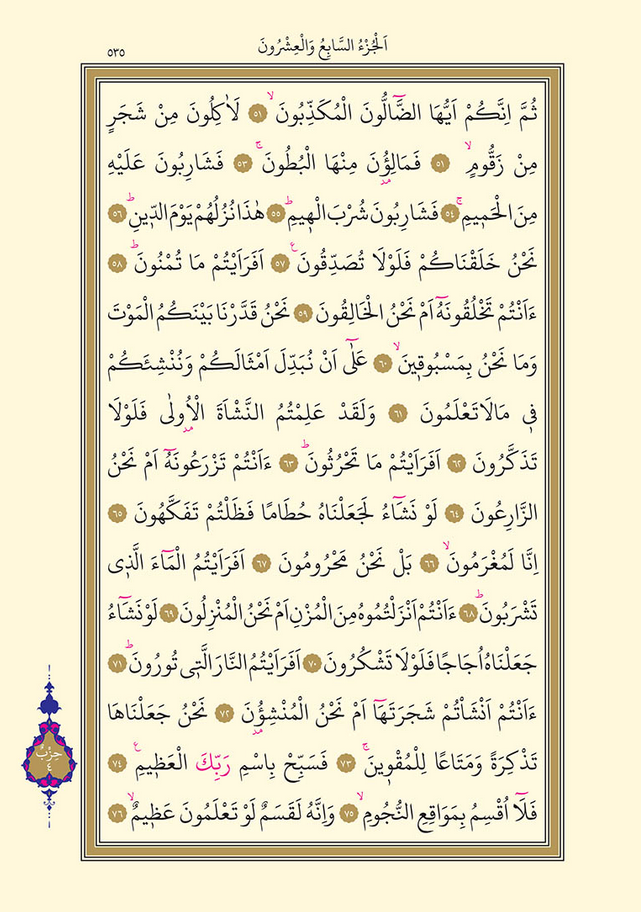 اَلْجُزْءُ السَّابِعُ وَالْعِشْرُونَ
٥٣٥
ثُمَّ اِنَّكُمْ اَيُّهَا الضَّٓالُّونَ الْمُكَذِّبُونَۙ ﴿٥١﴾ لَاٰكِلُونَ مِنْ شَجَرٍ
مِنْ زَقُّومٍۙ ﴿٥١﴾ فَمَالِؤُ۫نَ مِنْهَا الْبُطُونَۚ ﴿٥٣﴾ فَشَارِبُونَ عَلَيْهِ
مِنَ الْحَمٖيمِۚ ﴿٥٤﴾ فَشَارِبُونَ شُرْبَ الْهٖيمِۜ ﴿٥٥﴾ هٰذَا نُزُلُهُمْ يَوْمَ الدّٖينِۜ ﴿٥٦﴾
نَحْنُ خَلَقْنَاكُمْ فَلَوْلَا تُصَدِّقُونَ ﴿٥٧﴾ اَفَرَاَيْتُمْ مَا تُمْنُونَۜ ﴿٥٨﴾
ءَاَنْتُمْ تَخْلُقُونَهُٓ اَمْ نَحْنُ الْخَالِقُونَ ﴿٥٩﴾ نَحْنُ قَدَّرْنَا بَيْنَكُمُ الْمَوْتَ
وَمَا نَحْنُ بِمَسْبُوقٖينَۙ ﴿٦٠﴾ عَلٰٓى اَنْ نُبَدِّلَ اَمْثَالَكُمْ وَنُنْشِئَكُمْ
فٖي مَا لَا تَعْلَمُونَ ﴿٦١﴾ وَلَقَدْ عَلِمْتُمُ النَّشْاَةَ الْاُو۫لٰى فَلَوْلَا
تَذَكَّرُونَ ﴿٦٢﴾ اَفَرَاَيْتُمْ مَا تَحْرُثُونَۜ ﴿٦٣﴾ ءَاَنْتُمْ تَزْرَعُونَهُٓ اَمْ نَحْنُ
الزَّارِعُونَ ﴿٦٤﴾ لَوْ نَشَٓاءُ لَجَعَلْنَاهُ حُطَامًا فَظَلْتُمْ تَفَكَّهُونَ ﴿٦٥﴾
اِنَّا لَمُغْرَمُونَۙ ﴿٦٦﴾ بَلْ نَحْنُ مَحْرُومُونَ ﴿٦٧﴾ اَفَرَاَيْتُمُ الْمَٓاءَ الَّذٖي
تَشْرَبُونَۜ ﴿٦٨﴾ ءَاَنْتُمْ اَنْزَلْتُمُوهُ مِنَ الْمُزْنِ اَمْ نَحْنُ الْمُنْزِلُونَ ﴿٦٩﴾ لَوْ نَشَٓاءُ
جَعَلْنَاهُ اُجَاجًا فَلَوْلَا تَشْكُرُونَ ﴿٧٠﴾ اَفَرَاَيْتُمُ النَّارَ الَّتٖي تُورُونَۜ ﴿٧١﴾
ءَاَنْتُمْ اَنْشَأْتُمْ شَجَرَتَهَٓا اَمْ نَحْنُ الْمُنْشِؤُ۫نَ ﴿٧٢﴾ نَحْنُ جَعَلْنَاهَا
تَذْكِرَةً وَمَتَاعًا لِلْمُقْوٖينَۚ ﴿٧٣﴾ فَسَبِّحْ بِاسْمِ رَبِّكَ الْعَظٖيمِ ﴿٧٤﴾
فَلَٓا اُقْسِمُ بِمَوَاقِعِ النُّجُومِۙ ﴿٧٥﴾ وَاِنَّهُ لَقَسَمٌ لَوْ تَعْلَمُونَ عَظٖيمٌۙ ﴿٧٦﴾
حِزْبٌ
٤